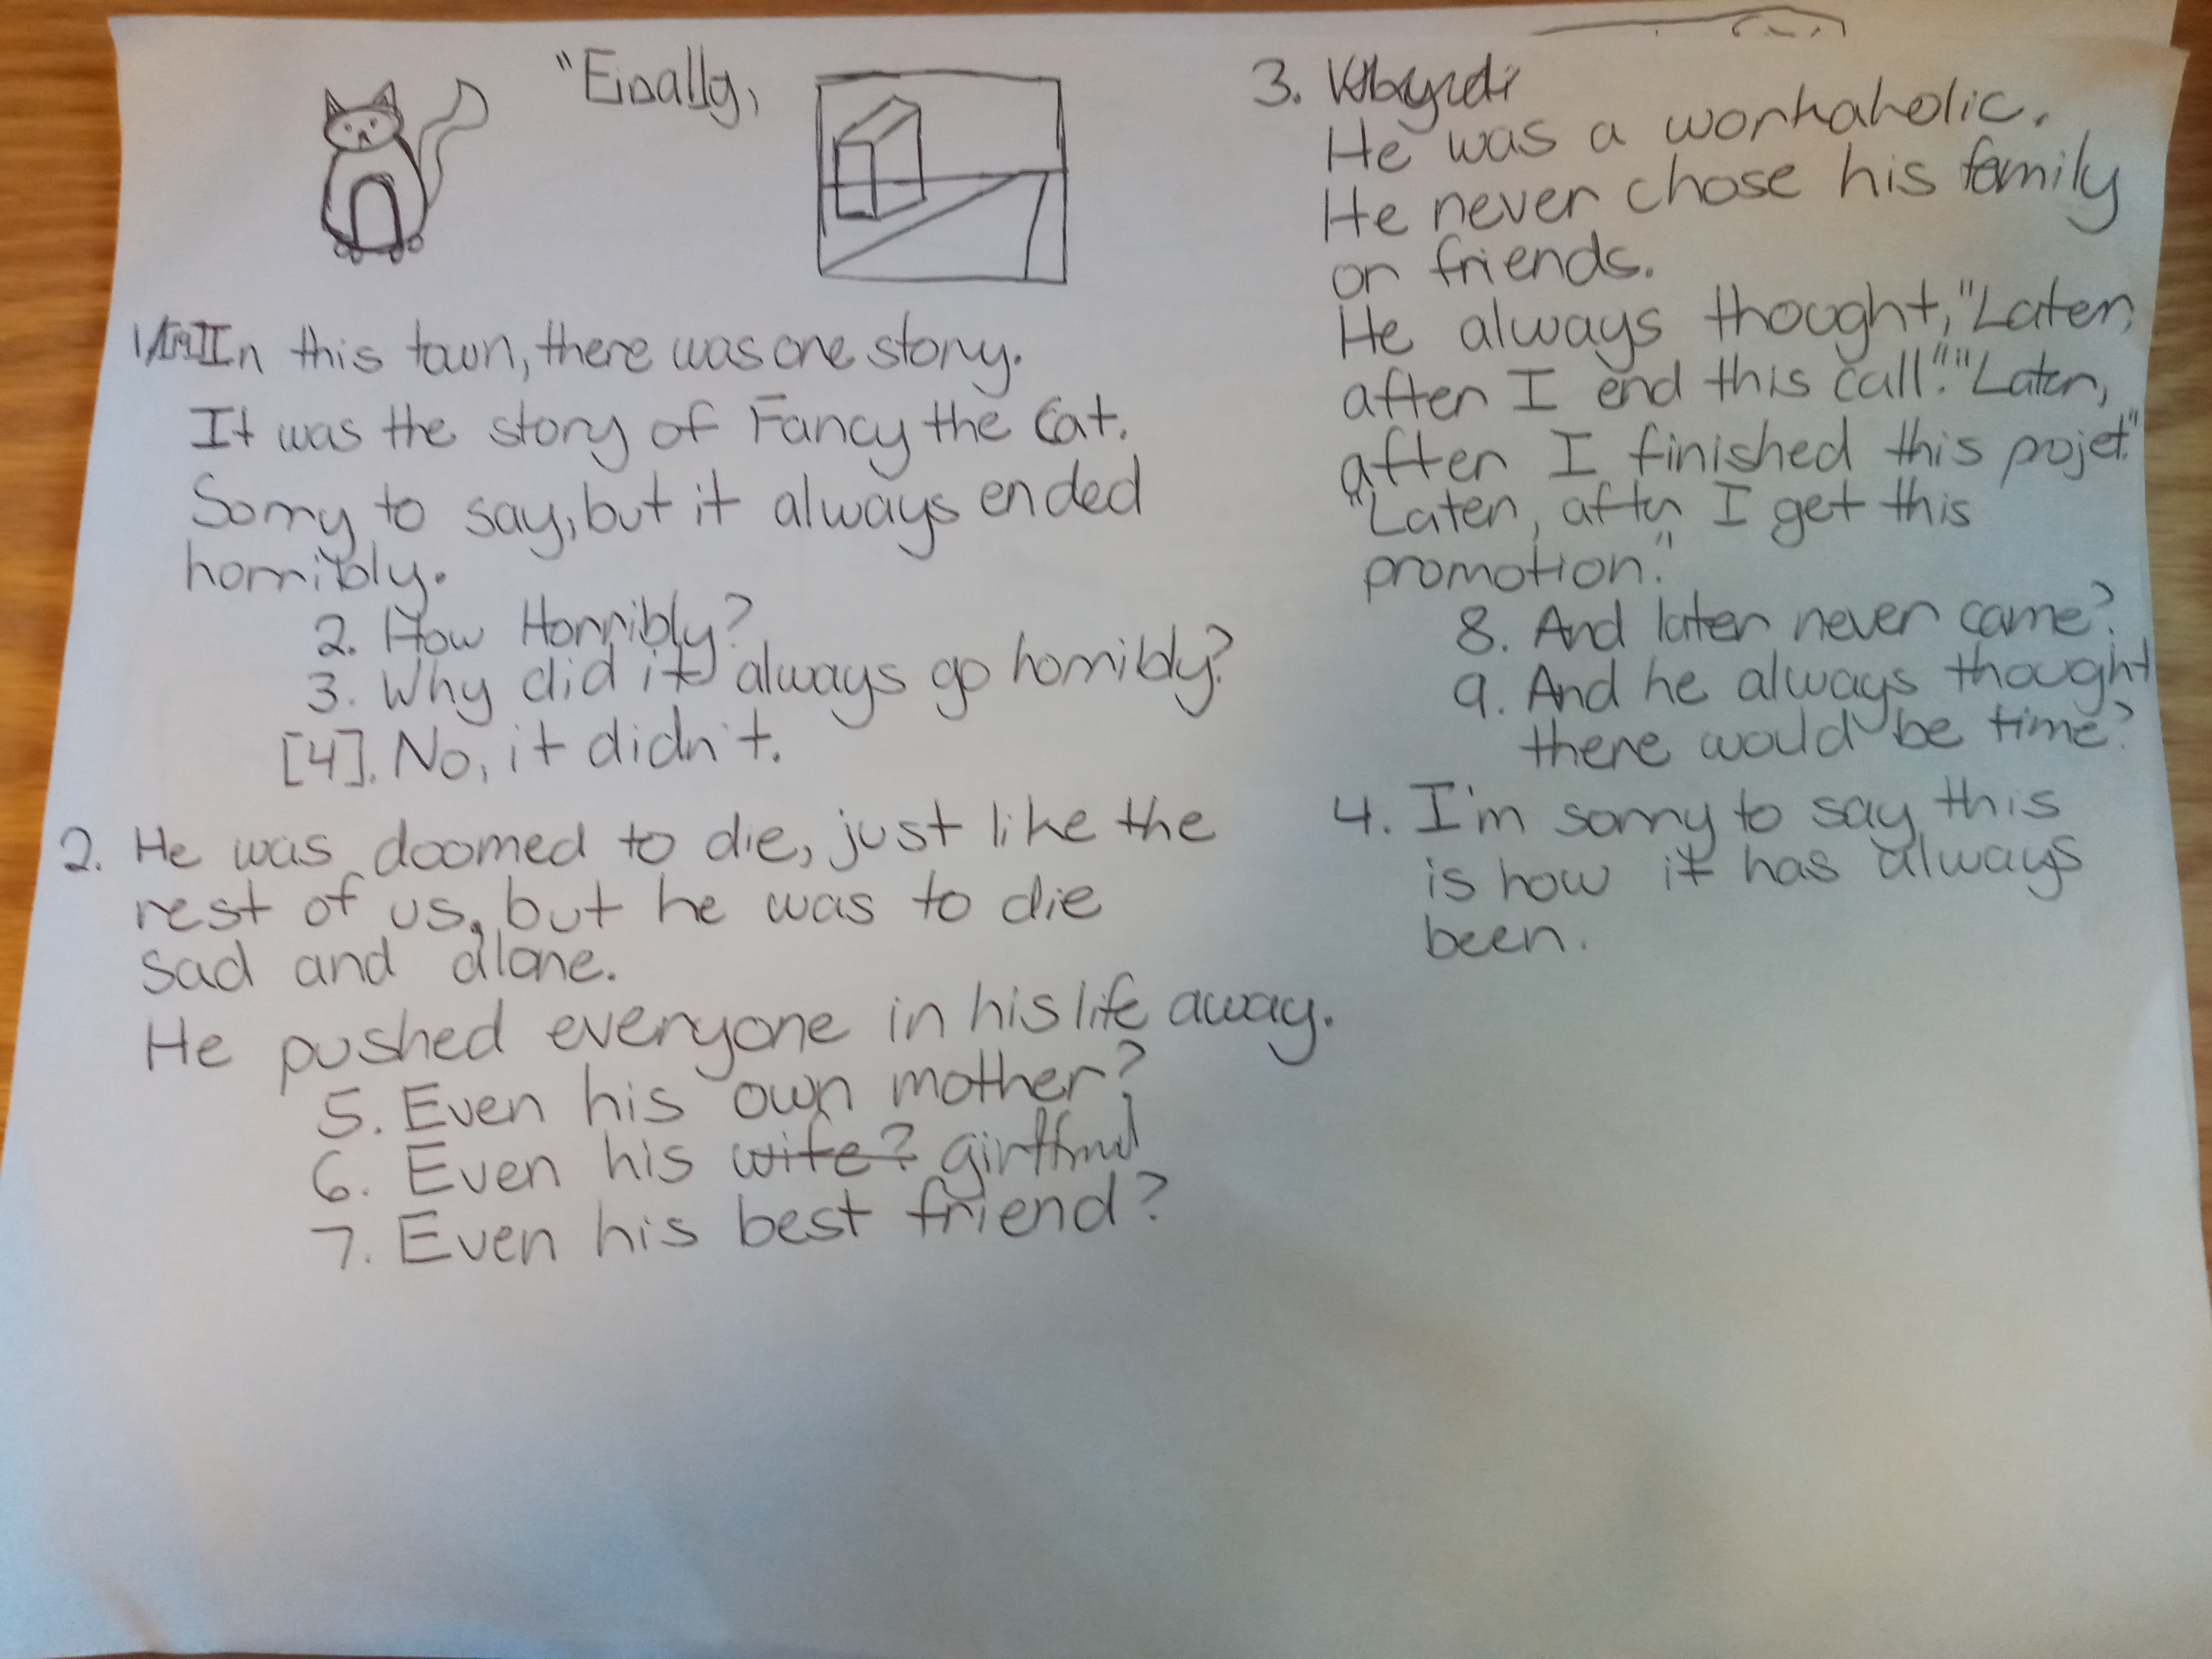 "Finally,
1. In this town, there was one story.
It was the story of Fancy the Cat.
Sorry to say, but it always ended
horribly.
2. How Horribly?
3. Why did it always go horribly?
[4]. No, it didn't.
2. He was doomed to die, just like the
rest of us, but he was to die
sad and alone.
He pushed everyone in his life away.
5. Even his own mother?
6. Even his wife? girlfriend
7. Even his best friend?
3.
He was a workaholic.
He never chose his family
or friends.
He always thought, "Later,
after I end this call." "Later,
after I finished this pojet."
"Later, after I get this
promotion."
8. And later never came?
9. And he always thought
there would be time?
4. I'm sorry to say, this
is how it has always
been.